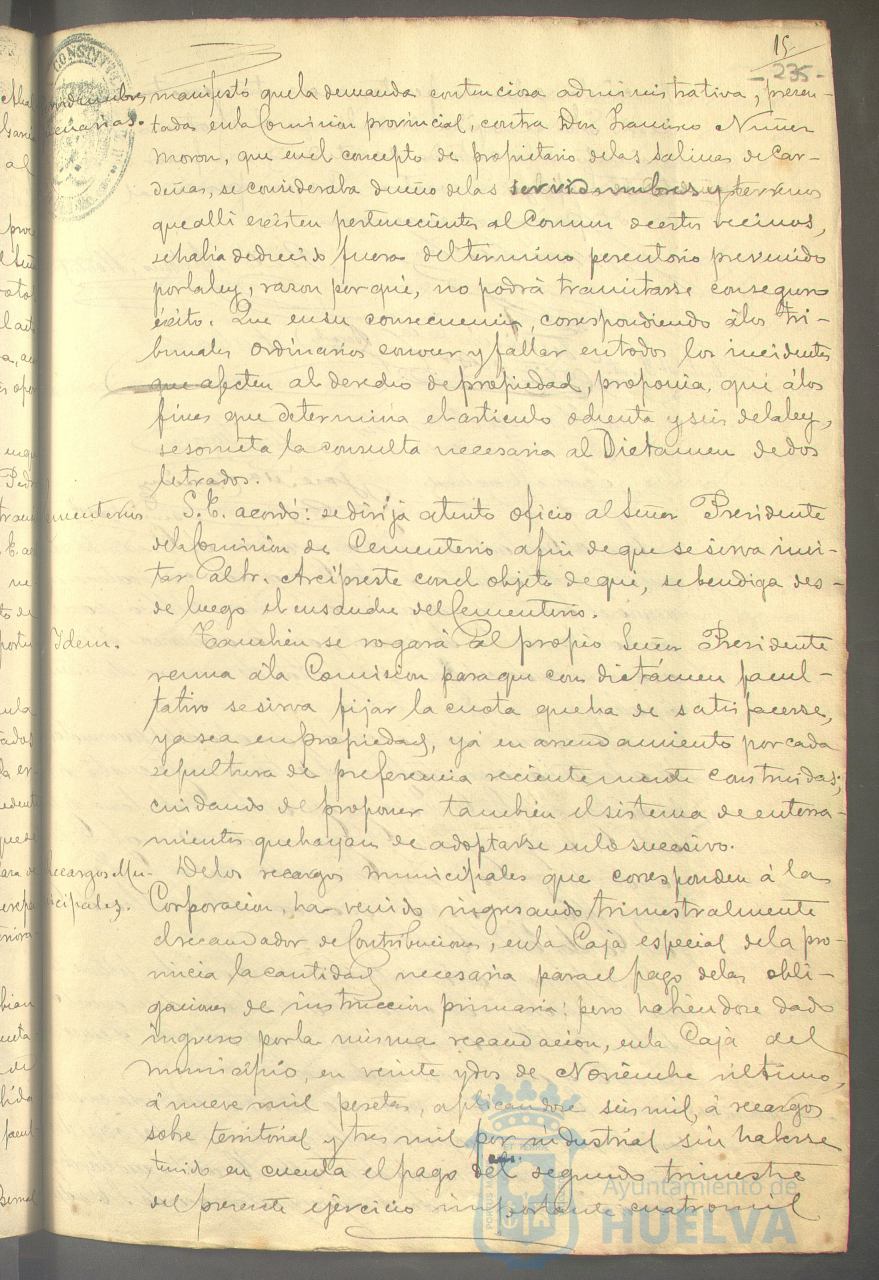 15
- 235 -
CONSTIT
manifestó que la demanda contenciosa administrativa, presen-
tada en la Comision provincial, contra Don Francisco Nuñez
Moron, que en el concepto de propietario de las Salinas de Car-
deñas, se consideraba dueño de las servidumbres y terrenos
que alli existen pertenecientes al Comun de estos vecinos,
se habia deducido fuera del termino perentorio prevenido
por la ley, razon por qué, no podrá tramitarse con seguro
éxito. Que en su consecuencia, correspondiendo á los tri-
bunales ordinarios conocer y fallar en todos los incidentes
que afecten al derecho de propiedad, proponia, que á los
fines que determina el articulo ochenta y seis de la ley,
se someta la consulta necesaria al Dictamen de dos
letrados.
Cementerio
S. E. acordó: se dirija atento oficio al Señor Presidente
de la Comision de Cementerio a fin de que se sirva invi-
tar al Sr. Arcipreste con el objeto de que, se bendiga des-
de luego el ensanche del Cementerio.
Idem.
Tambien se rogará al propio Señor Presidente
reuna á la Comision para que con dictámen facul-
tativo se sirva fijar la cuota que ha de satisfacerse,
ya sea en propiedad, yá en arrendamiento por cada
sepultura de preferencia recientemente construidas;
cuidando de proponer tambien el sistema de enterra-
mientos que hayan de adoptarse en lo sucesivo.
Recargos Mu-
nicipales.
De los recargos municipales que corresponden á la
Corporacion, ha venido ingresando trimestralmente
el recaudador de Contribuciones, en la Caja especial de la pro-
vincia la cantidad necesaria para el pago de las obli-
gaciones de instruccion primaria: pero habiendose dado
ingreso por la misma recaudacion, en la Caja del
Municipio, en veinte y dos de Noviembre último,
á nueve mil pesetas, aplicandose seis mil, á recargos
sobre territorial y tres mil por industrial sin haberse
tenido en cuenta el pago del segundo trimestre
del presente ejercicio importante cuatro mil
Ayuntamiento de
HUELVA